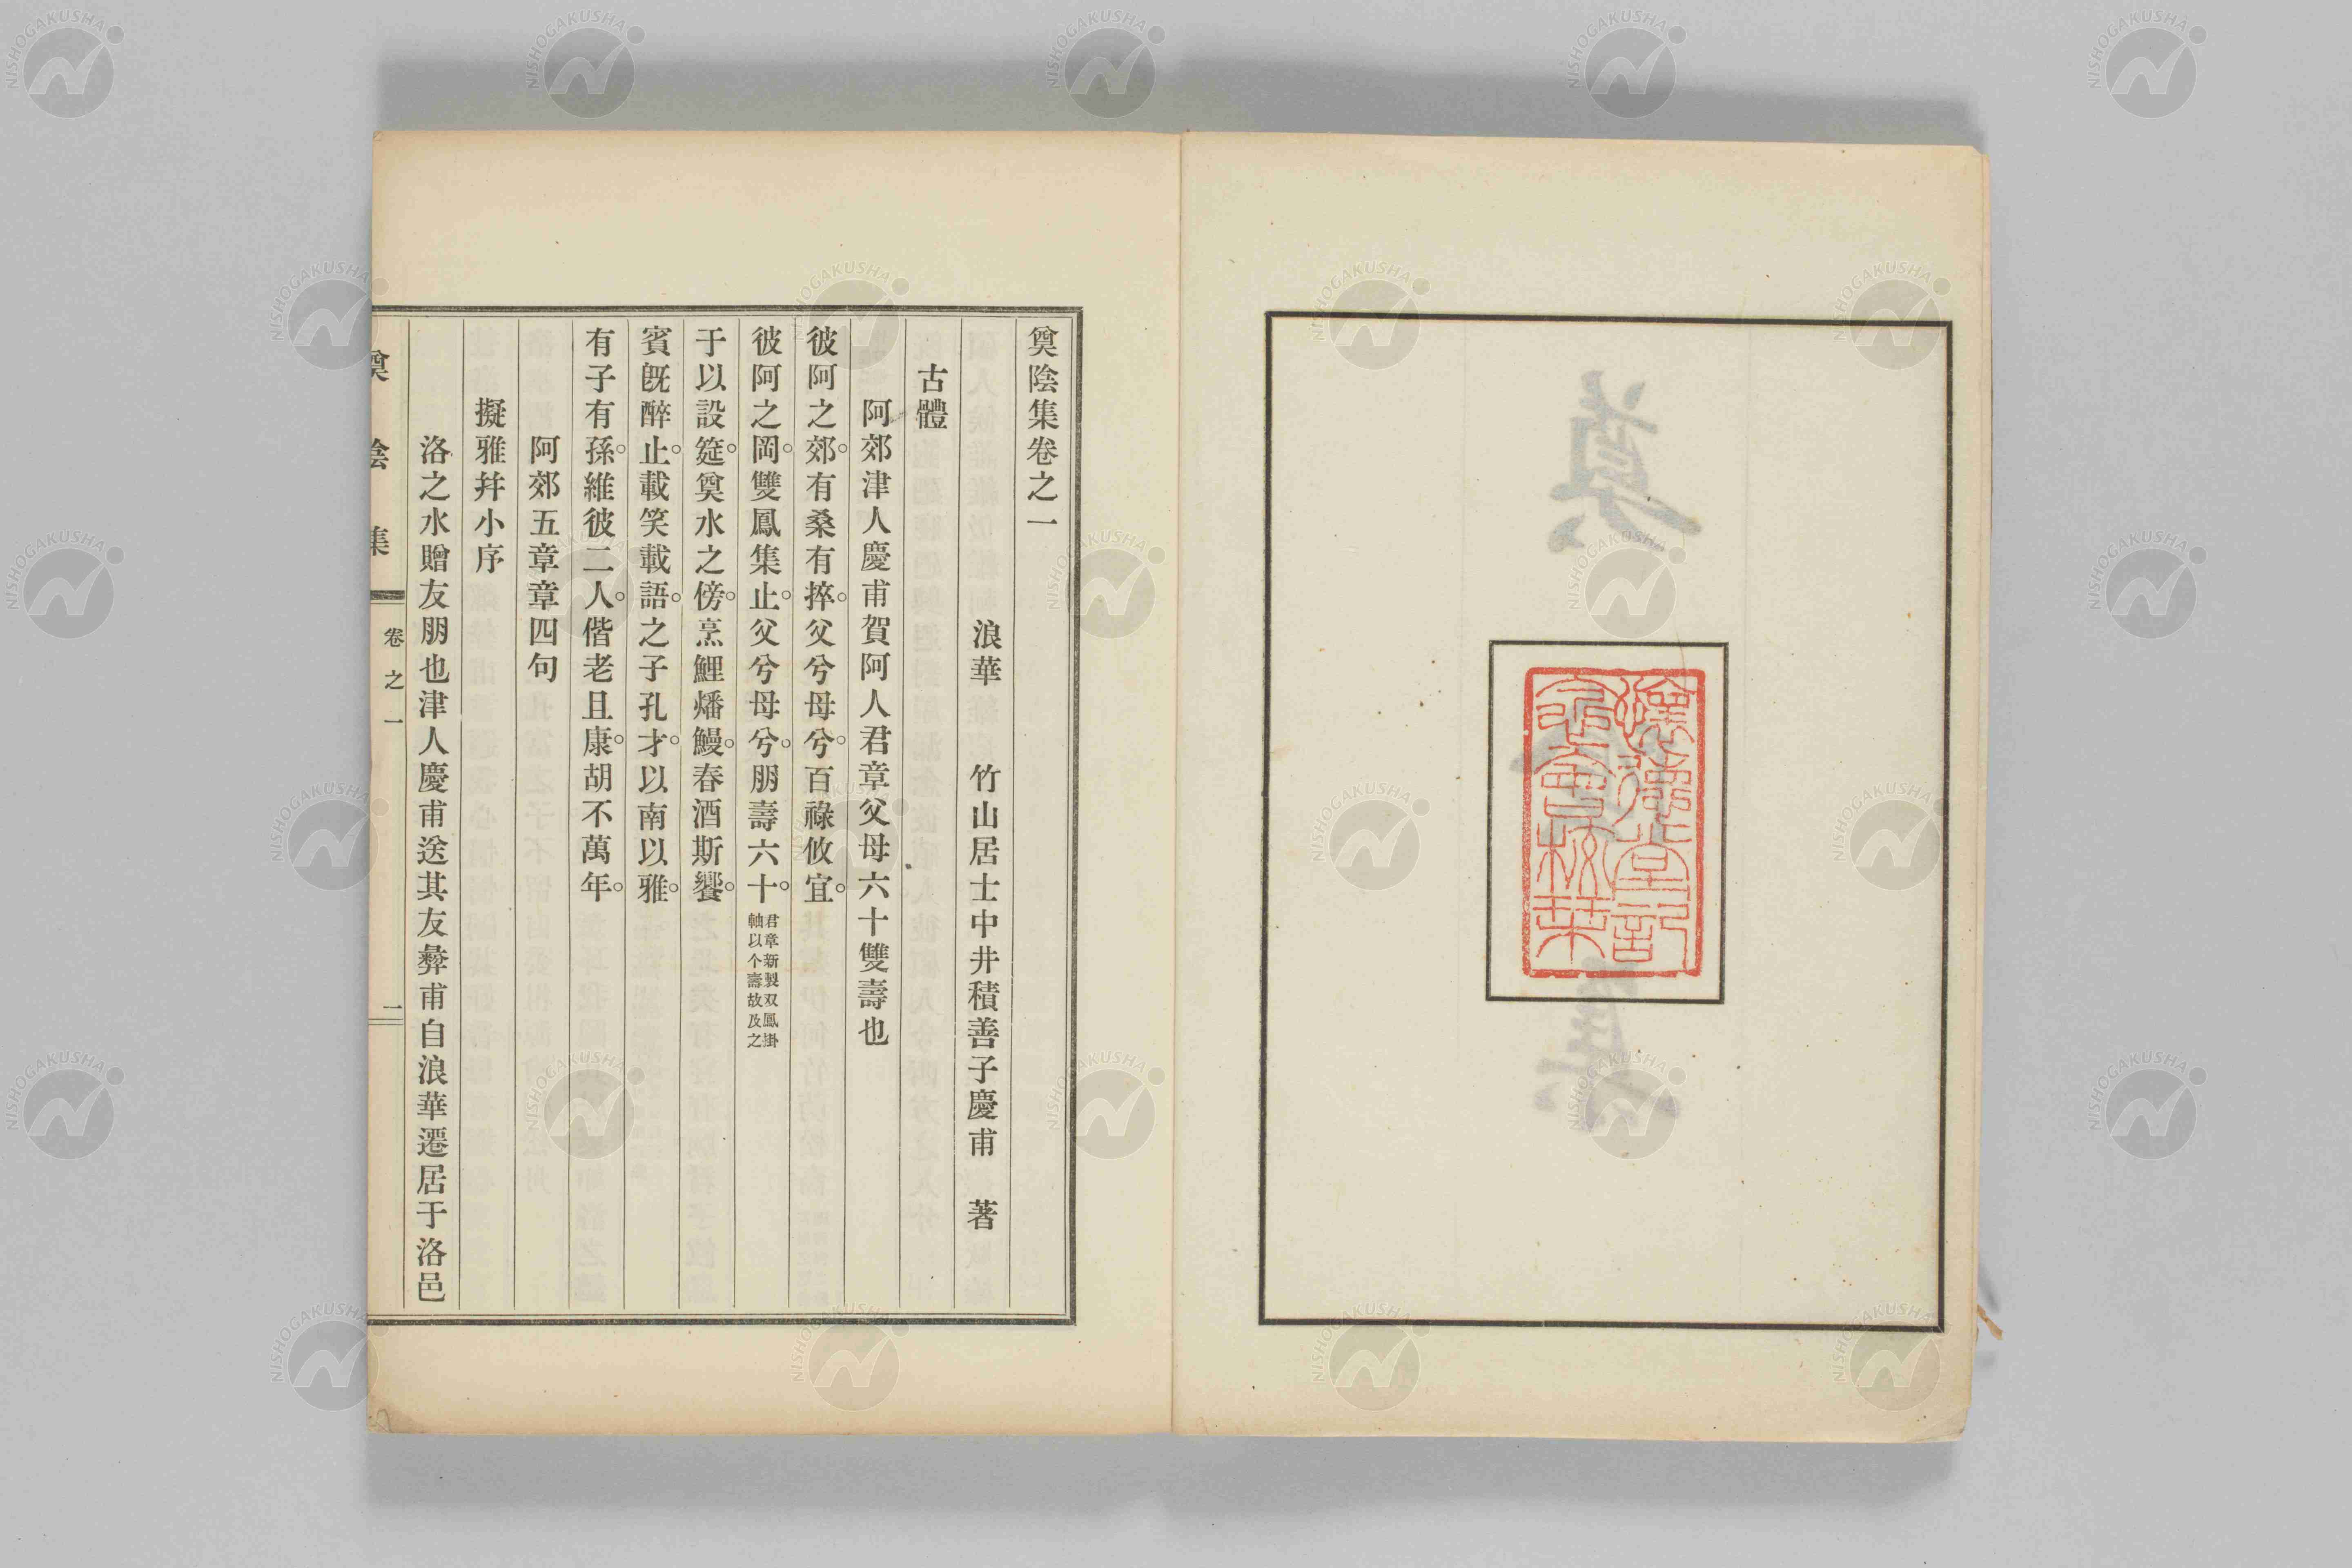 懷德堂記念會校栞
奠陰集卷之一
浪華 竹山居士中井積善子慶甫 著
古體
阿郊津人慶甫賀阿人君章父母六十雙壽也
彼阿之郊。有桑有捽。父兮母兮。百祿攸宜。
彼阿之岡。雙鳳集止。父兮母兮。朋壽六十。君章新製双鳳掛軸以个壽故及之
于以設筵。奠水之傍。烹鯉燔鰻。春酒斯饗。
賓旣醉止。載笑載語。之子孔才。以南以雅。
有子有孫。維彼二人。偕老且康。胡不萬年。
阿郊五章章四句
擬雅幷小序
洛之水贈友朋也津人慶甫送其友彜甫自浪華遷居于洛邑
奠陰集 卷之一 一
NISHOGAKUSHA